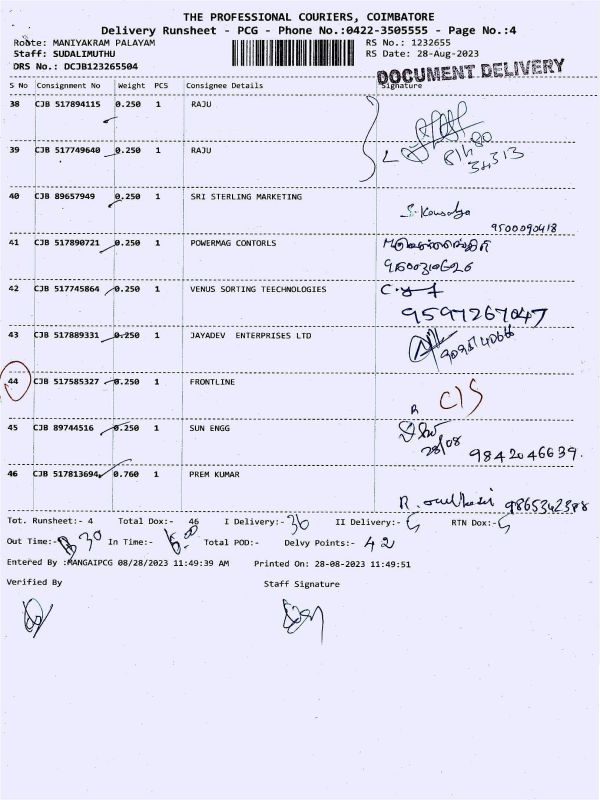 THE PROFESSIONAL COURIERS, COIMBATORE
Delivery Runsheet - PCG - Phone No.:0422-3505555 - Page No.:4
Route: MANIYAKRAM PALAYAM RS No.: 1232655
Staff: SUDALIMUTHU RS Date: 28-Aug-2023
DRS No.: DCJB123265504
DOCUMENT DELIVERY
S No Consignment No Weight PCS Consignee Details Signature
38 CJB 517894115 0.250 1 RAJU
39 CJB 517749640 0.250 1 RAJU
81480
34313
40 CJB 89657949 0.250 1 SRI STERLING MARKETING
S. Kousalya
9500090418
41 CJB 517890721 0.250 1 POWERMAG CONTORLS
42 CJB 517745864 0.250 1 VENUS SORTING TEECHNOLOGIES
9597267047
43 CJB 517889331 0.250 1 JAYADEV ENTERPRISES LTD
44 CJB 517585327 0.250 1 FRONTLINE
C/S
45 CJB 89744516 0.250 1 SUN ENGG
28/08 9842046639.
46 CJB 517813694 0.760 1 PREM KUMAR
R. 9865342388
Tot. Runsheet:- 4 Total Dox:- 46 I Delivery:- 36 II Delivery:- RTN Dox:-
Out Time:- 30 In Time:- Total POD:- Delvy Points:- 42
Entered By :MANGAIPCG 08/28/2023 11:49:39 AM Printed On: 28-08-2023 11:49:51
Verified By Staff Signature